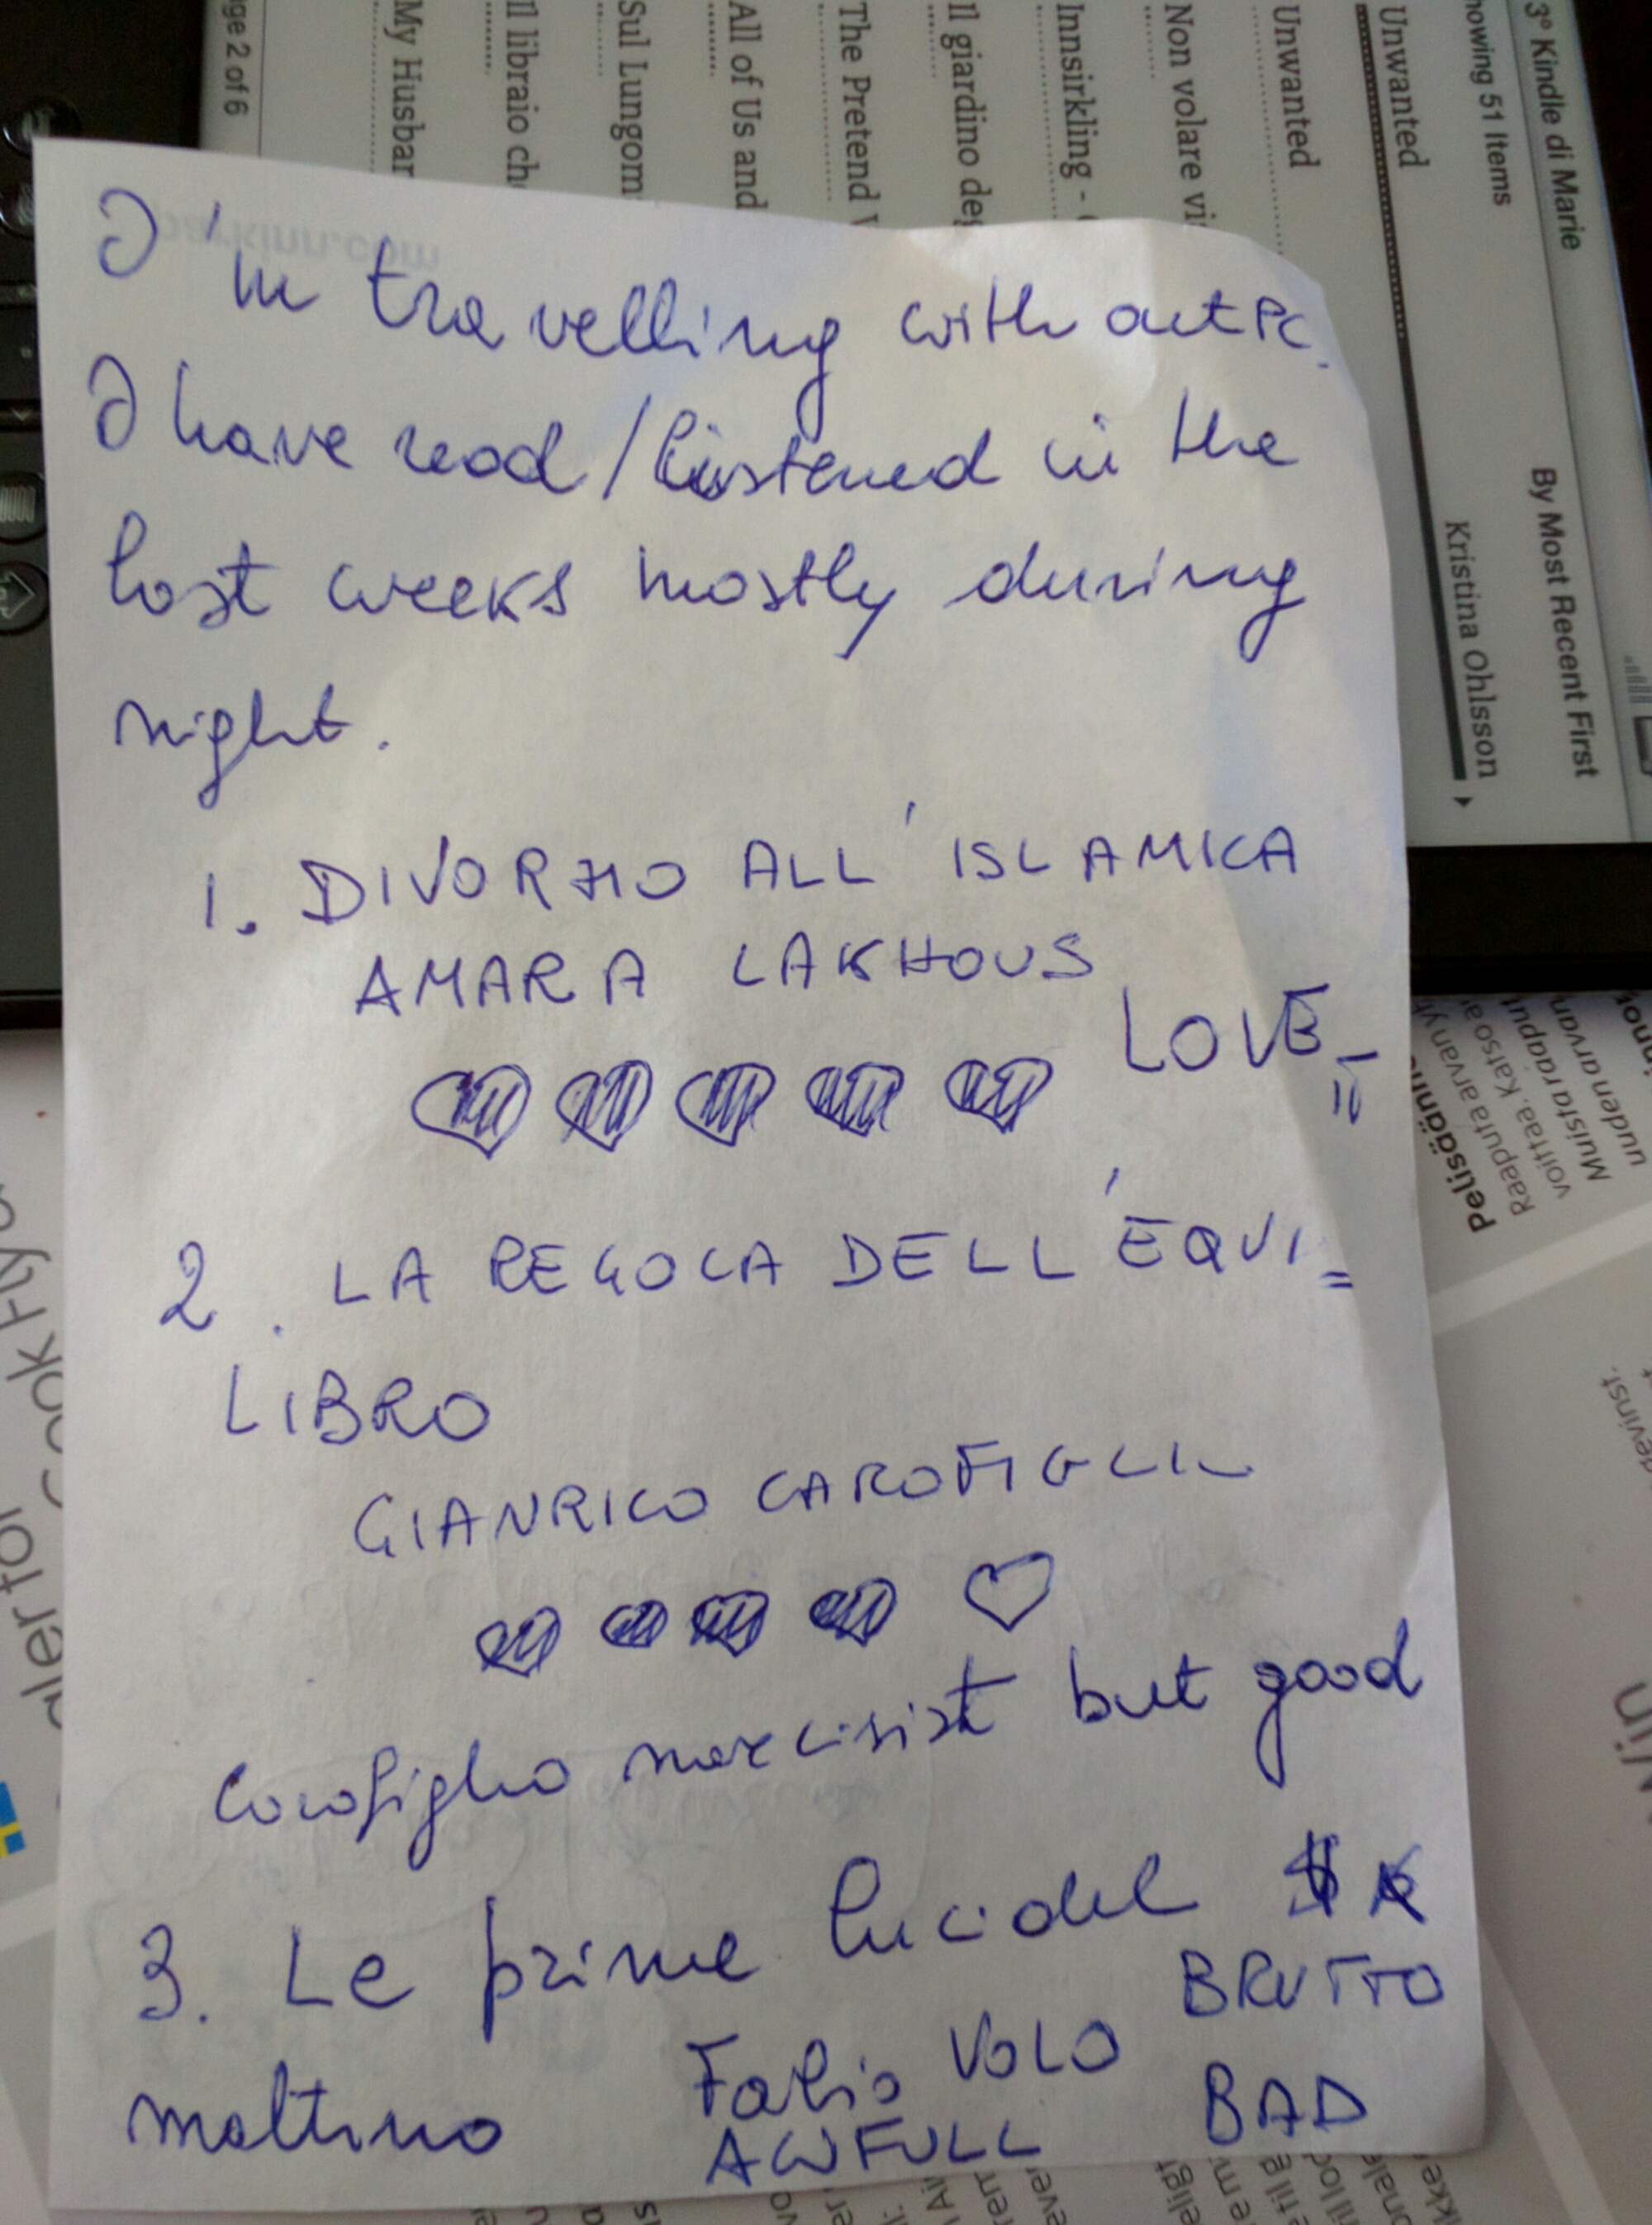 I'm travelling without PC.
I have read/listened in the
last weeks mostly during
night.
1. DIVORZIO ALL'ISLAMICA
AMARA LAKHOUS
LOVE
2. LA REGOLA DELL'EQUI=
LIBRO
GIANRICO CAROFIGLI
Carofiglio narcisist but good
3. Le prime luci del
mattino Fabio VOLO
BRUTTO
AWFULL BAD
3° Kindle di Marie
howing 51 Items
By Most Recent First
Unwanted
Kristina Ohlsson
Unwanted
Non volare vi
Innsirkling -
Il giardino deg
The Pretend
All of Us and
Sul Lungom
Il libraio ch
My Husban
ge 2 of 6
parkinn.com
Pelisään
Raaputa arvany
voittaa. Katso a
Muista raaput
uuden arvan